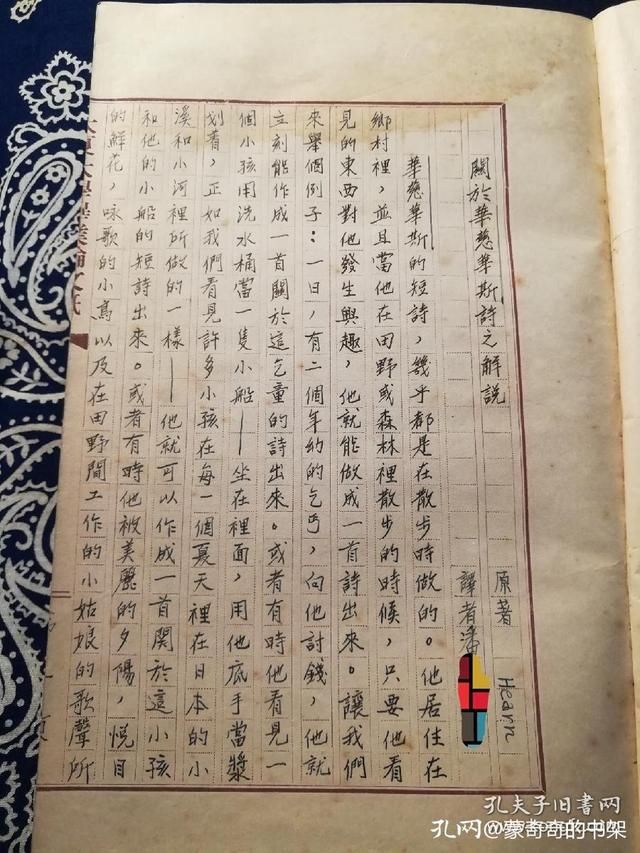 關於華慈華斯詩之解說
原著 Hearn
譯者潘
華慈華斯的短詩，幾乎都是在散步時做的。他居住在
鄉村裡，並且當他在田野或森林裡散步的時候，只要他看
見的東西對他發生興趣，他就能做成一首詩出來。讓我們
來舉個例子：一日，有二個年約的乞丐，向他討錢，他就
立刻能作成一首關於這乞童的詩出來。或者有時他看見一
個小孩用洗水桶當一隻小船——坐在裡面，用他底手當槳
划着，正如我們看見許多小孩在每一個夏天裡在日本的小
溪和小河裡所做的一樣——他就可以作成一首関於這小孩
和他的小船的短詩出來。或者有時他被美麗的夕陽，悅目
的鮮花，咏歌的小鳥以及在田野間工作的小姑娘的歌聲所
大學畢業論文紙
孔夫子旧书网
孔网@蒙奇奇的书架